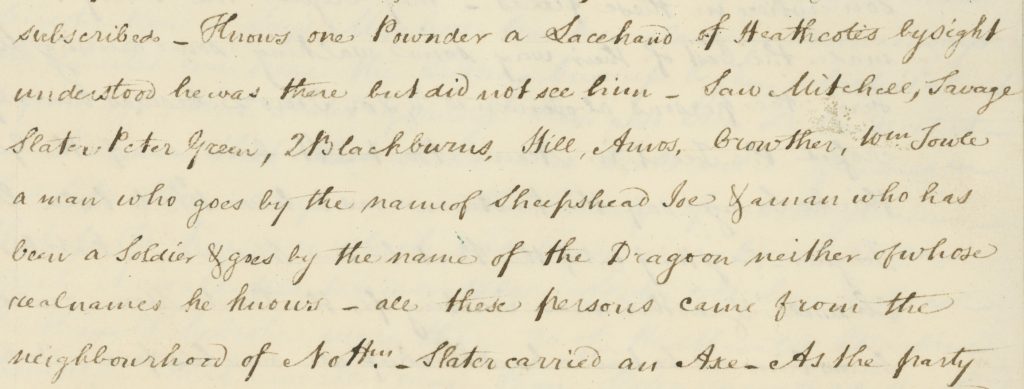 subscribed – Knows one Pownder a Lacehand of Heathcotes by sight
understood he was there but did not see him – Saw Mitchell, Savage
Slater Peter Green, 2 Blackburns, Hill, Amos, Crowther, Wm Towle
a man who goes by the name of Sheepshead Joe & a man who has
been a Soldier & goes by the name of the Dragoon neither of whose
real names he knows – all these persons came from the
neighbourhood of Nottm. – Slater carried an Axe – As the party